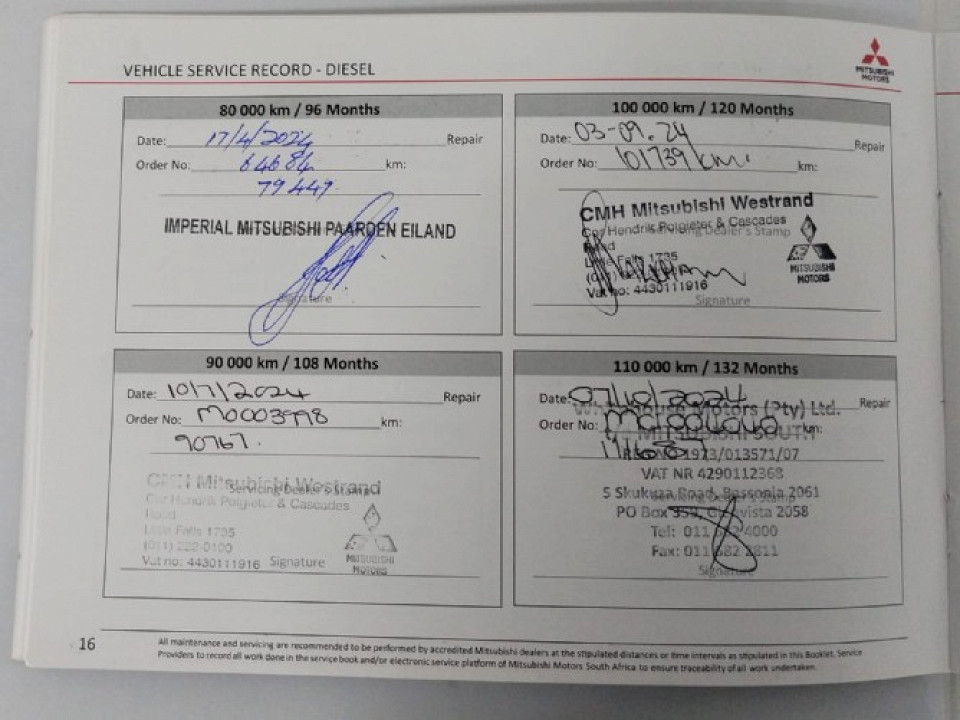 VEHICLE SERVICE RECORD - DIESEL
MITSUBISHI
MOTORS
80 000 km / 96 Months
Date: 17/4/2024 Repair
Order No: 64684 km:
79449
IMPERIAL MITSUBISHI PAARDEN EILAND
Signature
100 000 km / 120 Months
Date: 03-09.24 Repair
Order No: 101739 km. km:
CMH Mitsubishi Westrand
Cor Hendrik Potgieter & Cascades
Servicing Dealer's Stamp
Road
Little Falls 1735
Vat no: 4430111916
MITSUBISHI
MOTORS
Signature
90 000 km / 108 Months
Date: 10/7/2024 Repair
Order No: M0003998 km:
90767.
CMH Mitsubishi Westrand
Servicing Dealer's Stamp
Cor Hendrik Potgieter & Cascades
Road
Little Falls 1735
(011) 222-0100
Vat no: 4430111916 Signature
MITSUBISHI
MOTORS
110 000 km / 132 Months
Date: 07/10/2024 Repair
Motors (Pty) Ltd.
Order No: km:
MITSUBISHI SOUTH
1973/013571/07
VAT NR 4290112368
5 Skukuza Road, Bassonia 2061
Servicing Dealer's Stamp
PO Box 359, 2058
Tel: 011 682 4000
Fax: 011 682 2811
Signature
16
All maintenance and servicing are recommended to be performed by accredited Mitsubishi dealers at the stipulated distances or time intervals as stipulated in this Booklet. Service
Providers to record all work done in the service book and/or electronic service platform of Mitsubishi Motors South Africa to ensure traceability of all work undertaken.